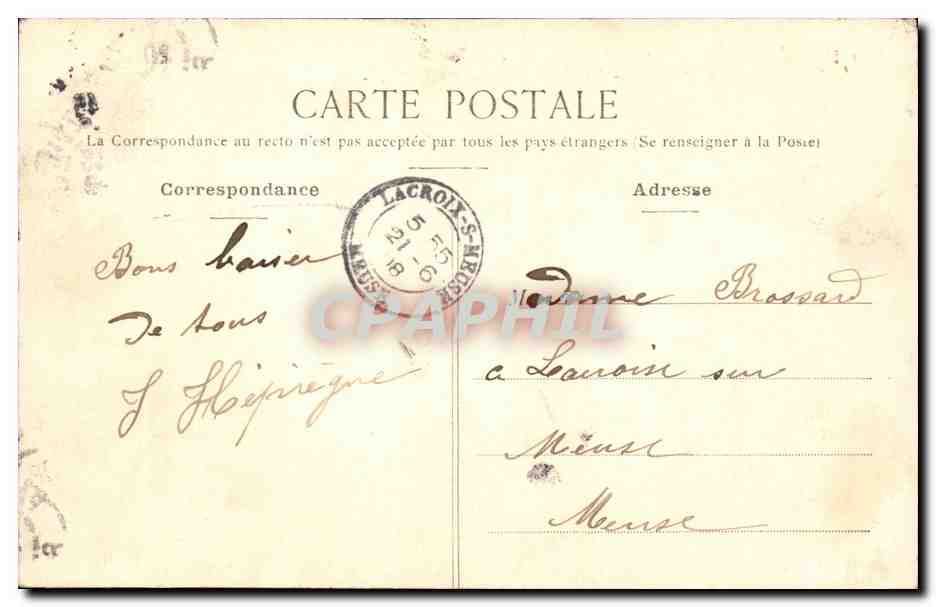 CARTE POSTALE
La Correspondance au recto n'est pas acceptée par tous les pays étrangers (Se renseigner à la Poste)
Correspondance
Adresse
LACROIX-S-MEUSE
5 55
21 - 6
08
MEUSE
Bons baiser
de tous
Madame Brossard
a Lacroix sur
Meuse
Meuse
CPAPHIL